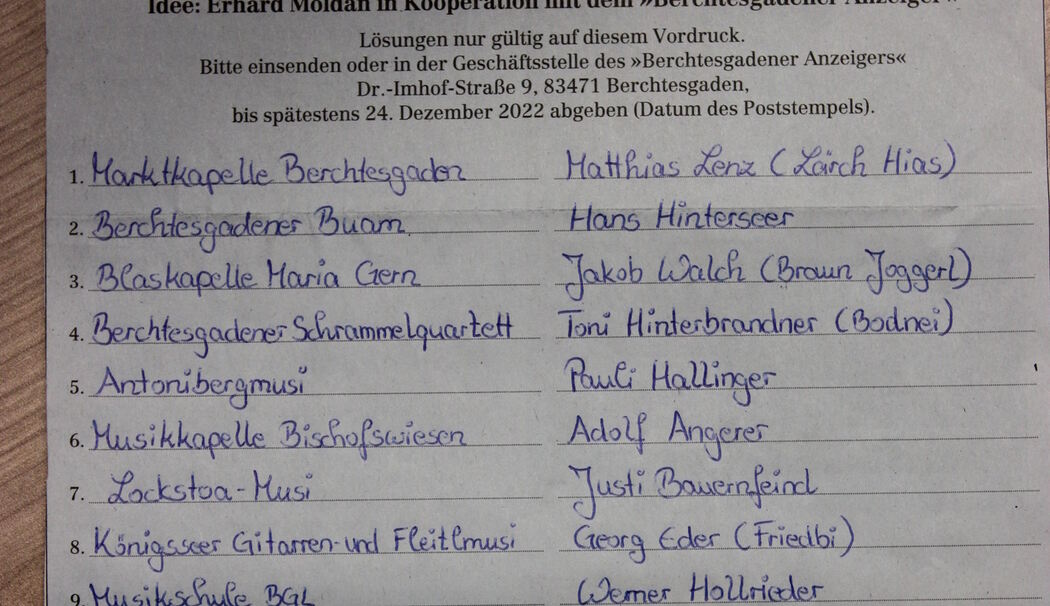 Idee: Erhard Moldan in Kooperation mit dem »Berchtesgadener Anzeiger«
Lösungen nur gültig auf diesem Vordruck.
Bitte einsenden oder in der Geschäftsstelle des »Berchtesgadener Anzeigers«
Dr.-Imhof-Straße 9, 83471 Berchtesgaden,
bis spätestens 24. Dezember 2022 abgeben (Datum des Poststempels).
1. Marktkapelle Berchtesgaden Matthias Lenz (Lärch Hias)
2. Berchtesgadener Buam Hans Hinterseer
3. Blaskapelle Maria Gern Jakob Walch (Braun Joggerl)
4. Berchtesgadener Schrammelquartett Toni Hinterbrandner (Bodnei)
5. Antonibergmusi Pauli Hallinger
6. Musikkapelle Bischofswiesen Adolf Angerer
7. Lockstoa-Musi Justi Bauernfeind
8. Königsseer Gitarren- und Fleitlmusi Georg Eder (Friedbi)
9. Musikschule BGL Werner Hollrieder